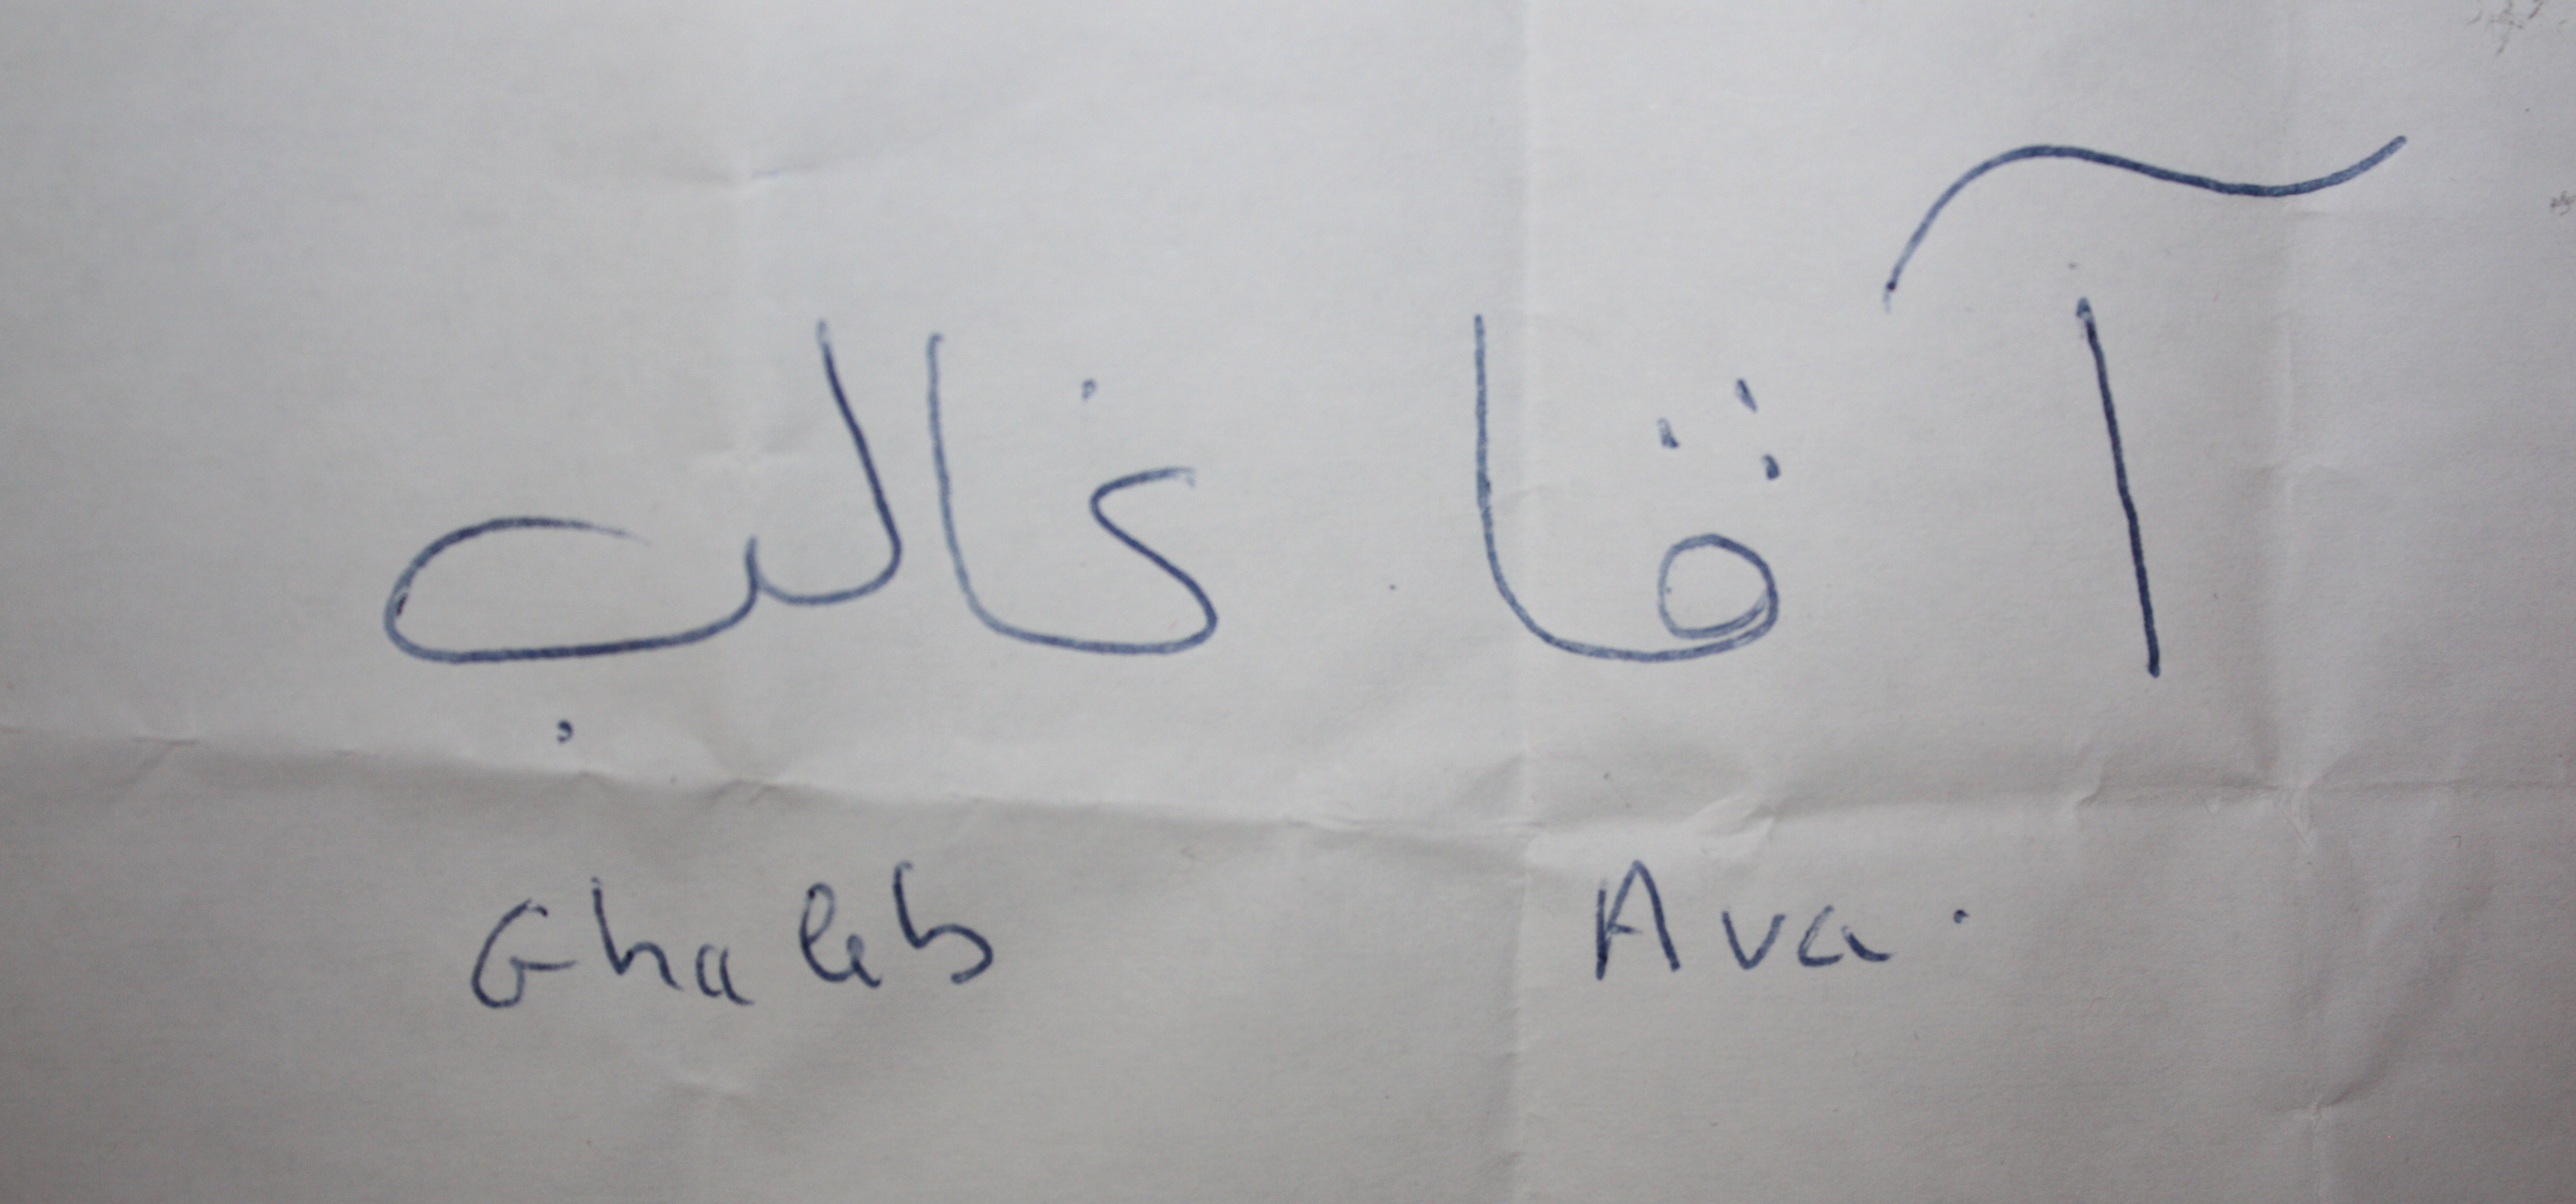 آڤا غالب
Ghaleb Ava.